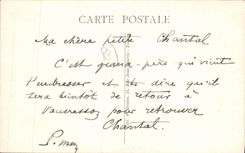 CARTE POSTALE
Ma chère petite Chantal
C'est grand-père qui vient
t'embrasser et te dire qu'il
sera bientôt de retour à
Vaucresson pour retrouver
Chantal.